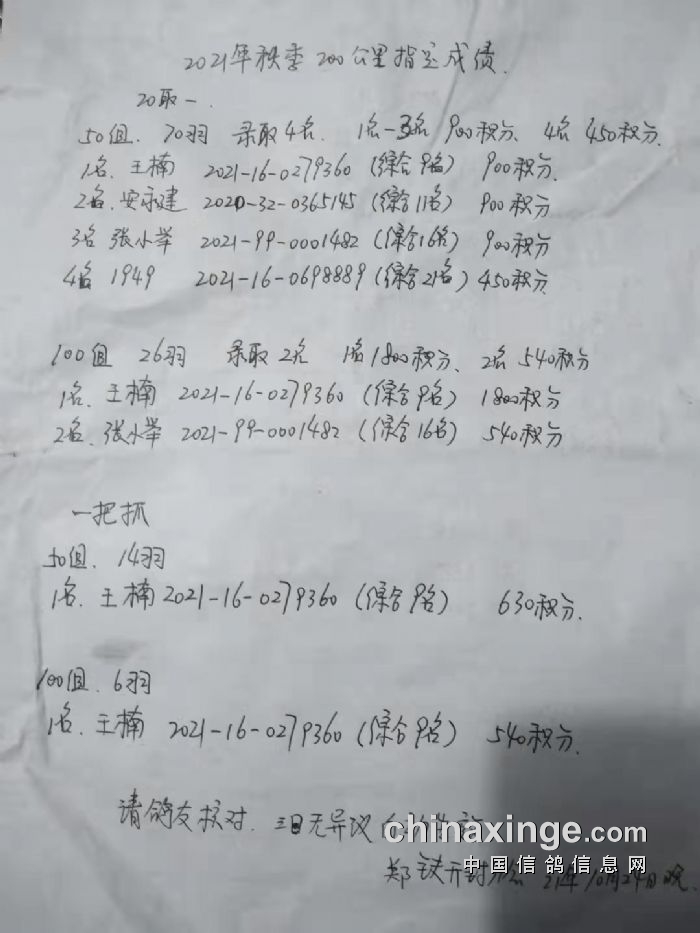 2021年秋季200公里指定成绩.
20取一.
50组. 70羽 录取4名. 1名-3名 900积分、4名 450积分.
1名. 王楠 2021-16-0279360 (综合9名) 900积分.
2名. 安永建 2020-32-0365145 (综合11名) 900积分
3名 张小举 2021-99-0001482 (综合16名) 900积分
4名 1949 2021-16-0698889 (综合21名) 450积分
100组 26羽 录取2名 1名1800积分、2名 540积分
1名. 王楠 2021-16-0279360 (综合9名) 1800积分
2名. 张小举 2021-99-0001482 (综合16名) 540积分
一把抓
50组. 14羽
1名. 王楠 2021-16-0279360 (综合9名) 630积分.
100组. 6羽
1名. 王楠 2021-16-0279360 (综合9名) 540积分.
请鸽友核对. 三日无异议
chinaxinge.com
中国信鸽信息网
郑铁开封 21年10月24日晚.